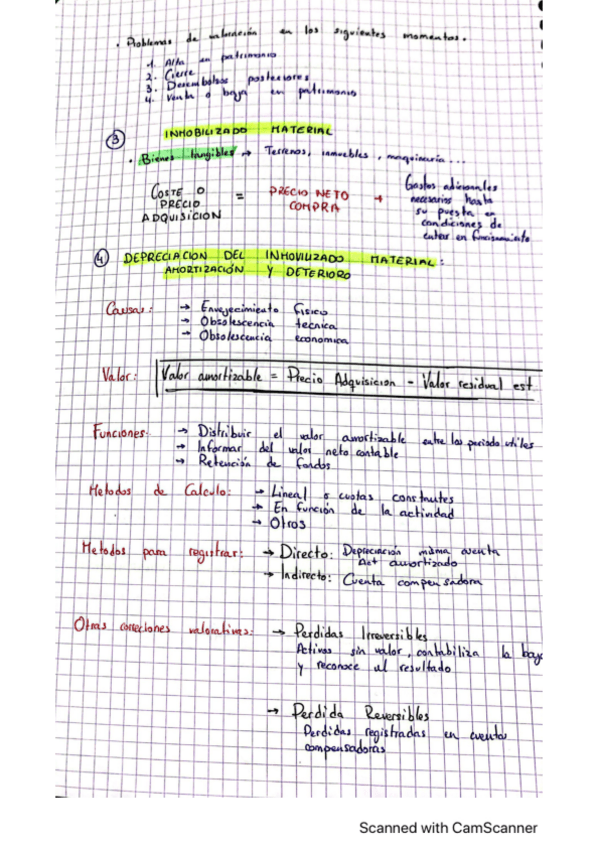 · Problemas de valoración en los siguientes momentos.
1. Alta en patrimonio
2. Cierre
3. Desembolsos posteriores
4. Venta o baja en patrimonio
③ INMOBILIZADO MATERIAL
· Bienes tangibles → Terrenos, inmuebles, maquinaria...
COSTE O PRECIO ADQUISICIÓN = PRECIO NETO COMPRA + Gastos adicionales
necesarios hasta
su puesta en
condiciones de
entrar en funcionamiento
④ DEPRECIACION DEL INMOVILIZADO MATERIAL:
AMORTIZACIÓN Y DETERIORO
Causas: → Envejecimiento físico
→ Obsolescencia tecnica
→ Obsolescencia economica
Valor: Valor amortizable = Precio Adquisicion - Valor residual est
Funciones: → Distribuir el valor amortizable entre los periodo utiles
→ Informar del valor neto contable
→ Retención de fondos
Metodos de Calculo: → Lineal o cuotas constantes
→ En función de la actividad
→ Otros
Metodos para registrar: → Directo: Depreciación misma cuenta
Act amortizado
→ Indirecto: Cuenta compensadora
Otras correciones valorativas: → Perdidas Irreversibles
Activos sin valor, contabiliza la baja
y reconoce el resultado
→ Perdida Reversibles
Perdidas registradas en cuentas
compensadoras
Scanned with CamScanner